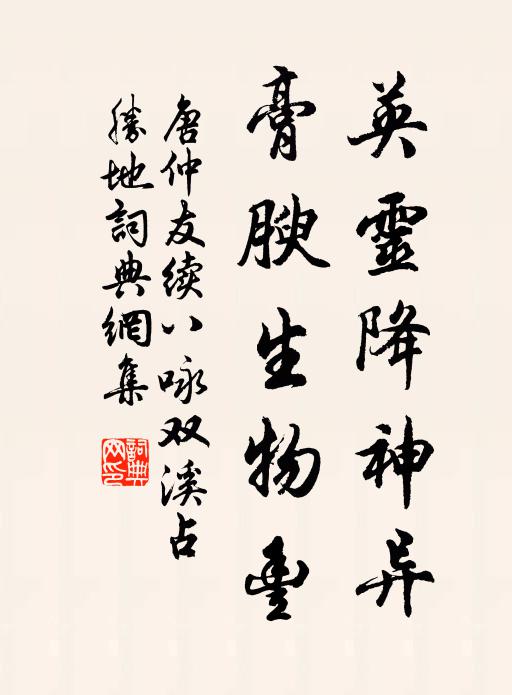 英靈降神异
膏腴生物豊
唐仲友续八咏双溪占
勝地詞典網集
詞典网印